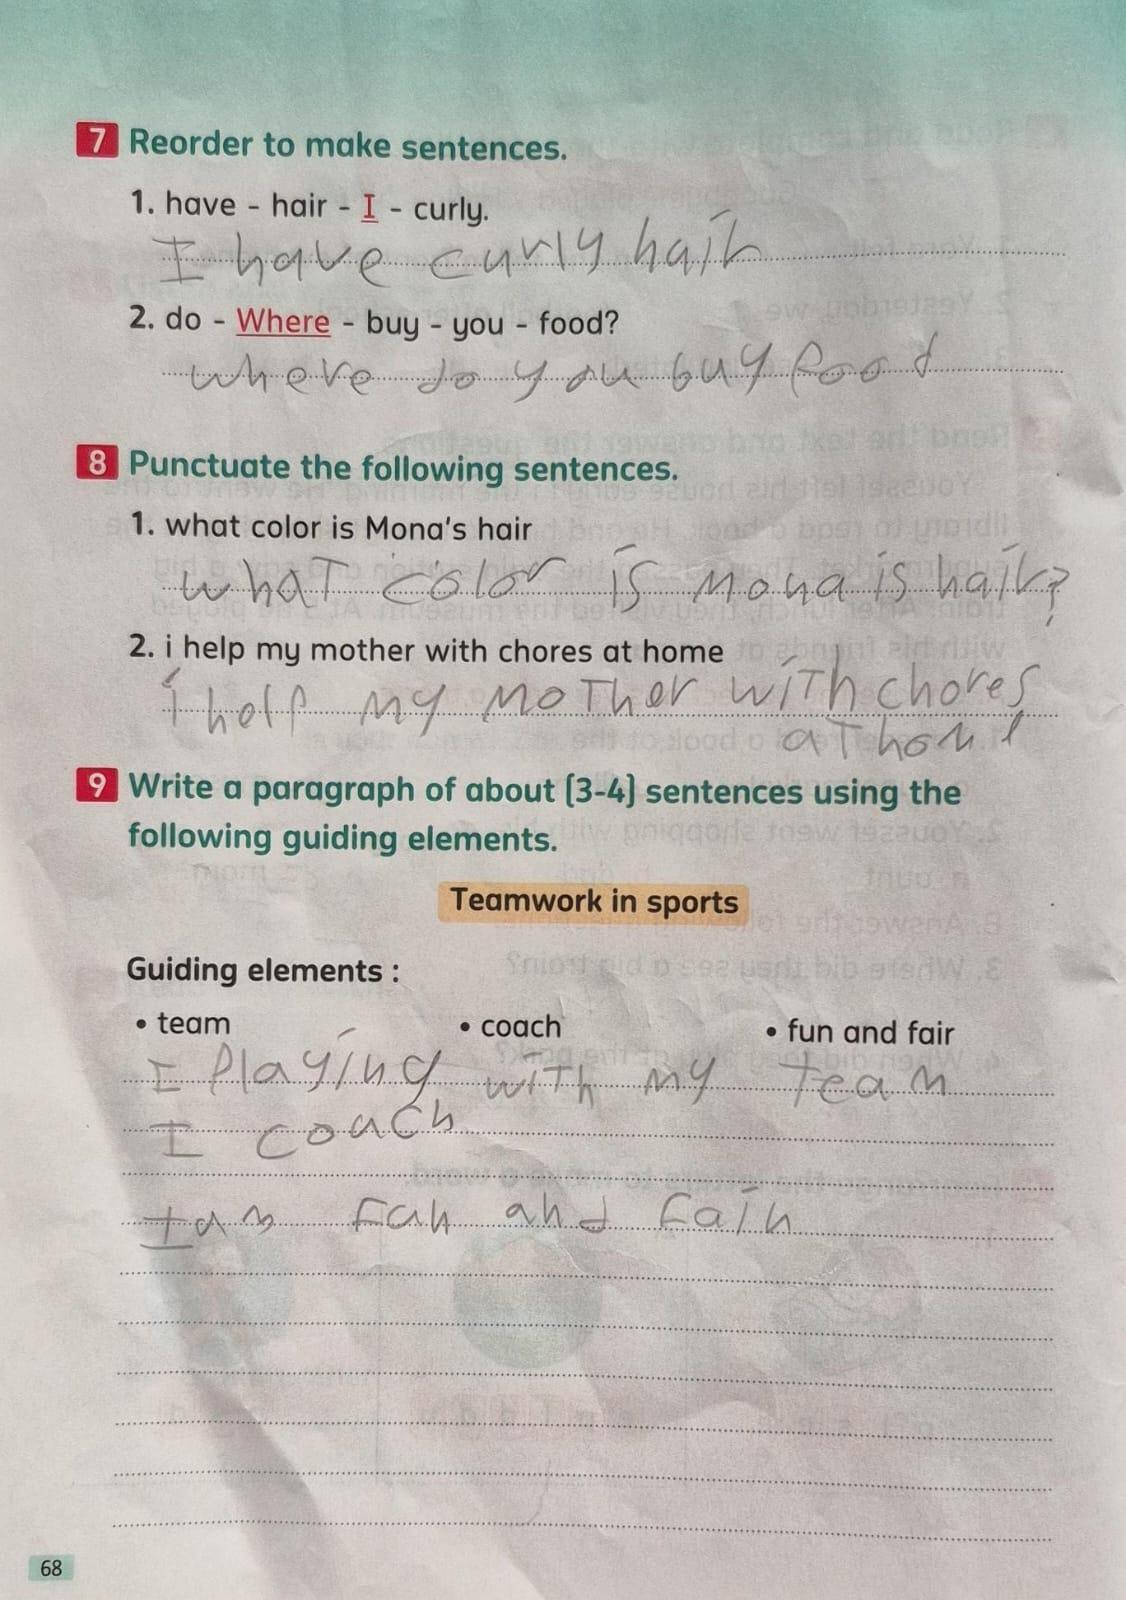 7 Reorder to make sentences.
1. have - hair - I - curly.
I have curly hair
2. do - Where - buy - you - food?
where do you buy food
8 Punctuate the following sentences.
1. what color is Mona's hair
what color is Mona is hair?
2. i help my mother with chores at home
i help my mother with chores
at home
9 Write a paragraph of about (3-4) sentences using the
following guiding elements.
Teamwork in sports
Guiding elements :
• team • coach • fun and fair
I playing with my team
I coach
I am fun and fair
68